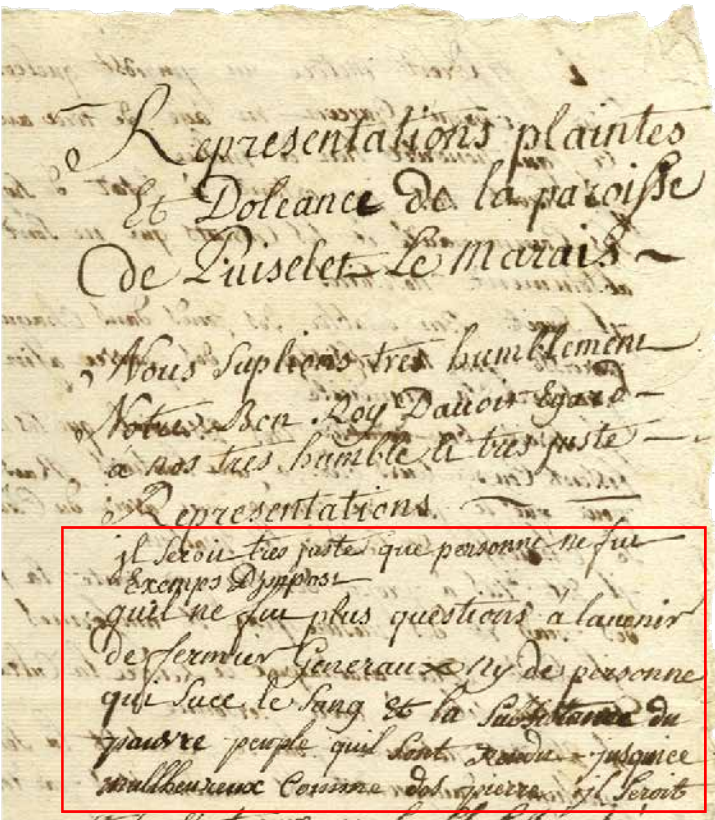 Representations plaintes
Et Doleance de la paroisse
de Puiselet Le Marais
Nous Suplions tres humblement
Notre Bon Roy Davoir Egard
a nos tres humble et tres juste
Representations
jl seroit tres juste que personne ne fut
Exemps Dympost
quil ne fut plus questions á lavenir
de fermier Generaux Ny de personne
qui Suce le Sang Et la Substance du
pauvre peuple quil sont Rendu jusquice
mallheureux Comme des pierre jl Seroit